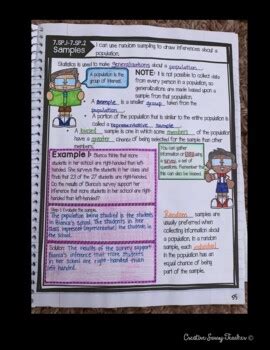 7.SP.1-7.SP.2
Samples
I can use random sampling to draw inferences about a
population.
Statistics is used to make generalizations about a population.
A population is the
group of interest.
NOTE: It is not possible to collect data
from every person in a population, so
generalizations are made based upon a
sample from that population.
A sample is a smaller group taken from the
population.
A portion of the population that is similar to the entire population is
called a representative sample.
A biased sample is one in which some members of the population
have a greater chance of being selected for the sample than others.
Example 1:
Bianca thinks that more
students in her school are right-handed than
left-handed. She surveys the students in her class and
finds that 23 of the 27 students are right-handed.
Do the results of Bianca's survey support her
inference that more students in her school are right-handed
than left-handed?
You can gather
information or data using
a survey, a set of
questions. Remember
this can also be biased.
Step 1: Analyze the sample.
The population being studied is the students
in Bianca's school. The students in her
class represent
students in the
school.
Solution: The results of the survey support
Bianca's inference that more students
in her school are right-handed than
left-handed.
Random samples are
usually preferred when
collecting information about
a population. In a random
sample, each individual
in the population has an
equal chance of being
part of the sample.
Creative Sassy Teacher